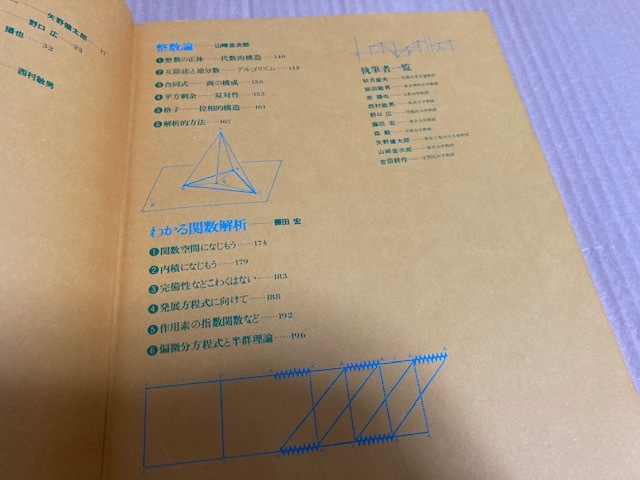 矢野健太郎
野口 広……23
攝也……32
西村敏男
整数論——山崎圭次郎
❶整数の正体—代数的構造……140
❷互除法と連分数—アルゴリズム……145
❸合同式—商の構成……150
❹平方剰余—双対性……155
❺格子—位相的構造……161
❻解析的方法……167
わかる関数解析——藤田 宏
❶関数空間になじもう……174
❷内積になじもう……179
❸完備性などこわくはない……183
❹発展方程式に向けて……188
❺作用素の指数関数など……192
❻偏微分方程式と半群理論……196
執筆者一覧
秋月康夫
柴田敏男
赤 攝也
西村敏男
野口 広
藤田 宏
森 毅
矢野健太郎
山崎圭次郎
吉田耕作